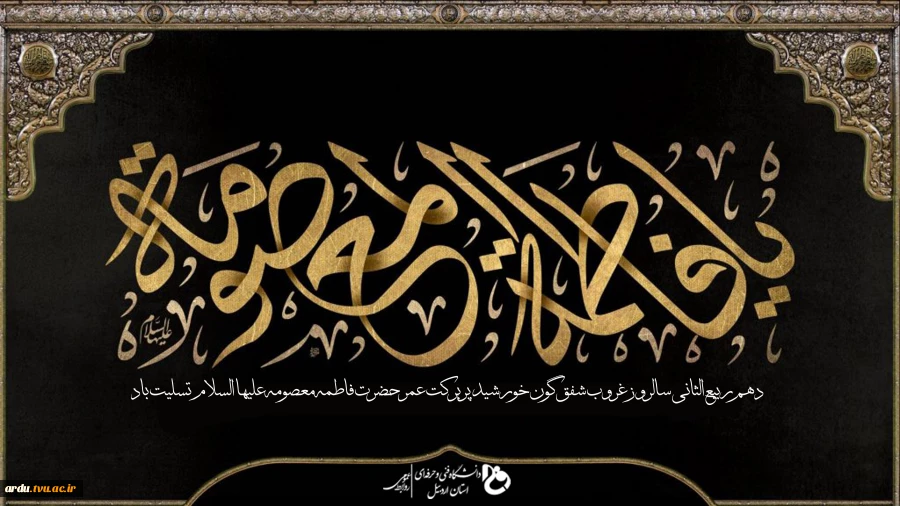 یا فاطمة المعصومة
علیها السلام
دهم ربیع الثانی سالروز غروب شفق گون خورشید پر برکت عمر حضرت فاطمه معصومه علیها السلام تسلیت باد
دانشگاه فنی و حرفه‌ای
استان اردبیل
روابط عمومی
ardu.tvu.ac.ir